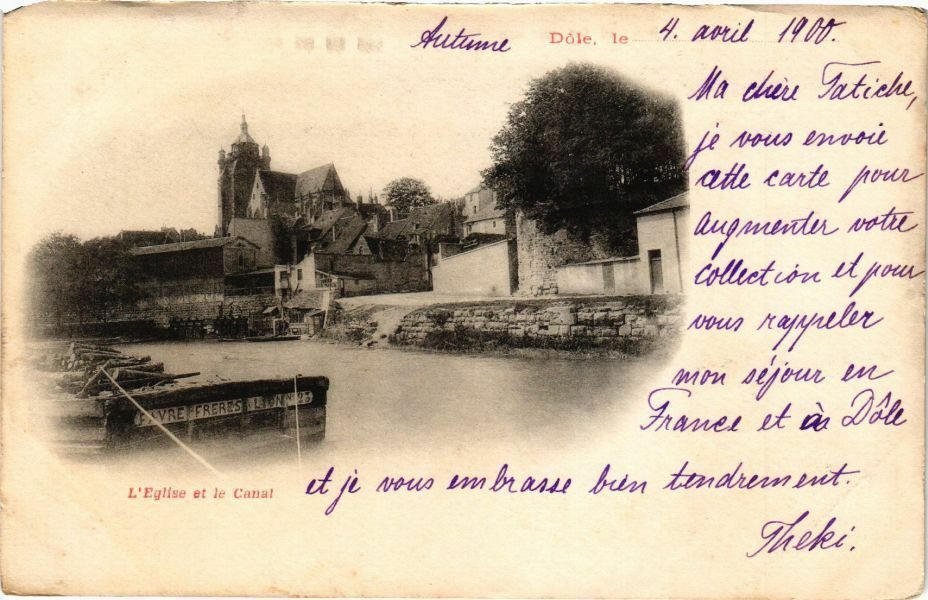 Autume Dôle, le 4. avril 1900.
Ma chère Tatiche,
je vous envoie
cette carte pour
augmenter votre
collection et pour
vous rappeler
mon séjour en
France et à Dôle
et je vous embrasse bien tendrement.
Theki.
FAVRE-FRERES LYON N° 23
L'Eglise et le Canal